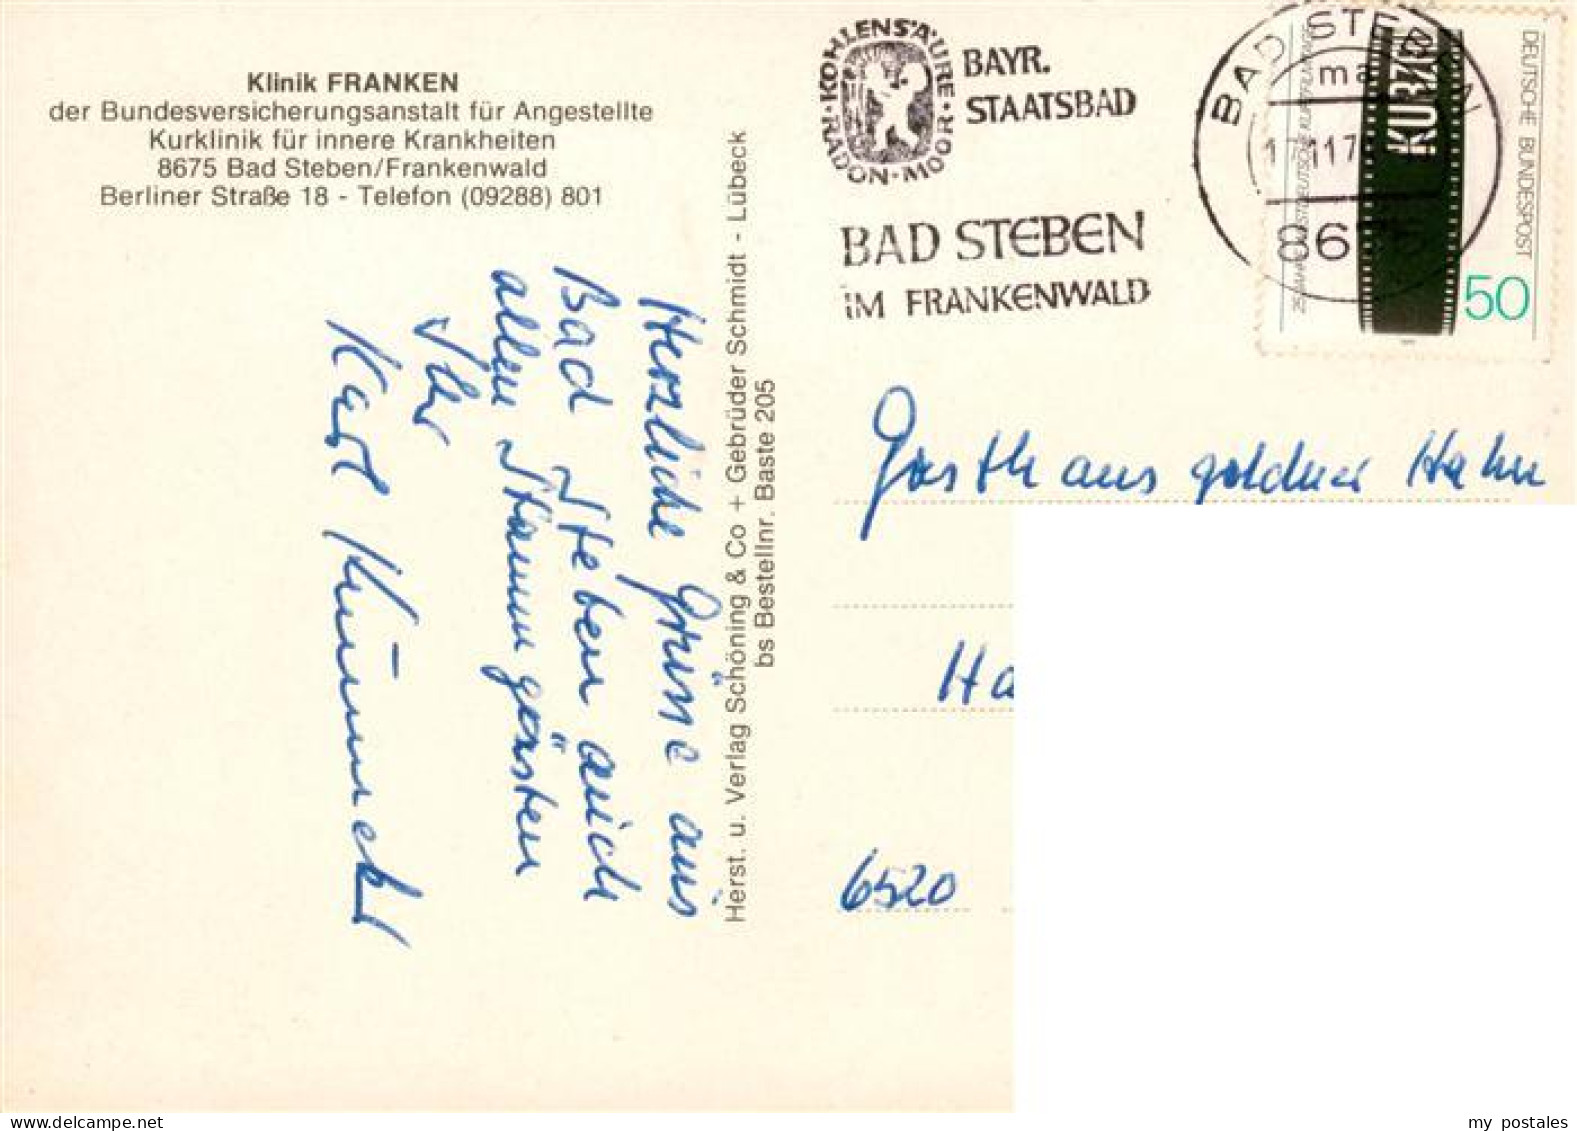 Klinik FRANKEN
der Bundesversicherungsanstalt für Angestellte
Kurklinik für innere Krankheiten
8675 Bad Steben/Frankenwald
Berliner Straße 18 - Telefon (09288) 801
Herzliche Grüsse aus
Bad Steben auch
allen Stammgästen
Ihr
Karl
Herst. u. Verlag Schöning & Co + Gebrüder Schmidt - Lübeck
bs Bestellnr. Baste 205
KOHLENSÄURE · MOOR · RADON ·
BAYR.
STAATSBAD
BAD STEBEN
IM FRANKENWALD
BAD STEBEN
DEUTSCHE BUNDESPOST
50
Gasthaus goldner Hahn
Ha
6520
my postales